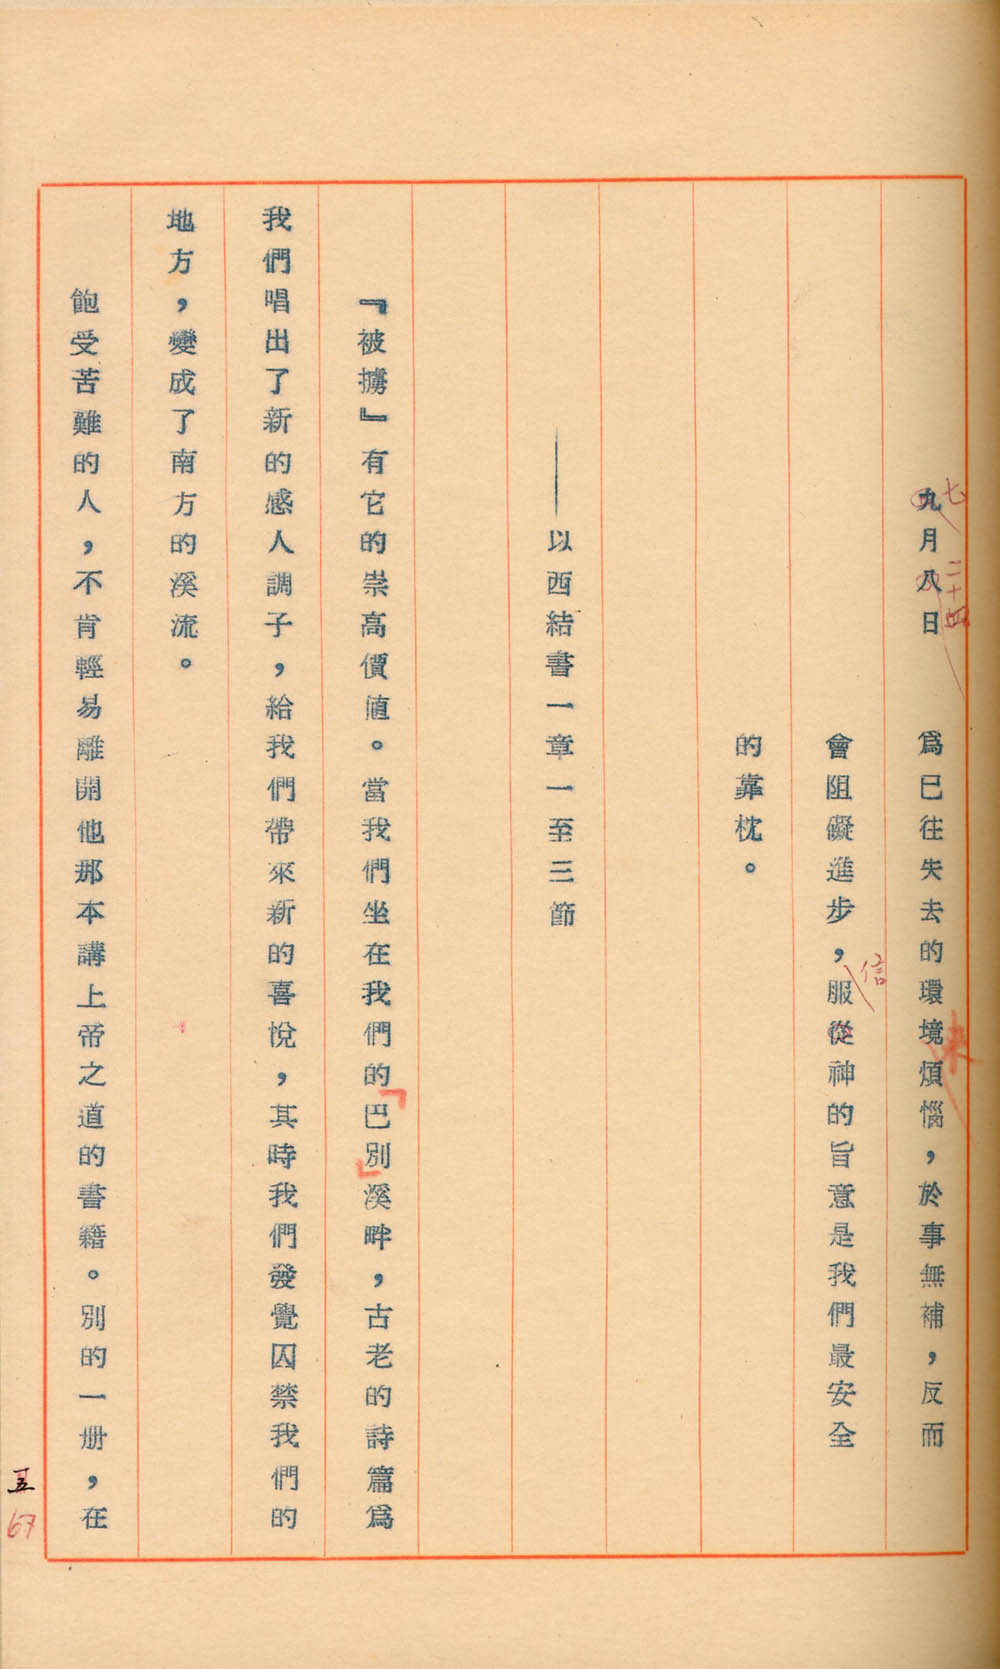 九月八日　爲已往失去的環境煩惱，於事無補，反而
七
二十四
會阻礙進步，服從神的旨意是我們最安全
信
的靠枕。
——以西結書一章一至三節
『被擄』有它的崇高價値。當我們坐在我們的「巴別」溪畔，古老的詩篇爲
我們唱出了新的感人調子，給我們帶來新的喜悅，其時我們發覺囚禁我們的
地方，變成了南方的溪流。
飽受苦難的人，不肯輕易離開他那本講上帝之道的書籍。別的一册，在
五
67